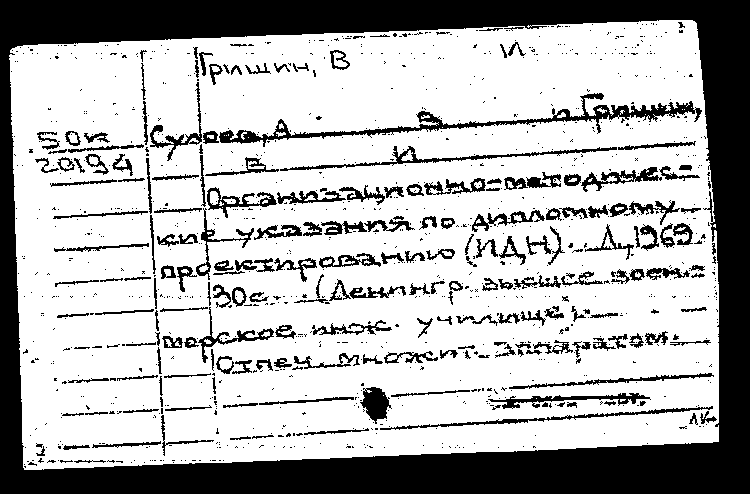 Гришин, В И.
50к Сулоев, А В и Гришин,
20194 В И
Организационно-методичес-
кие указания по дипломному
проектированию (ИДН). Л., 1969.
30с. (Ленингр. высшее воен.-
морское инж. училище).
Отпеч. множит. аппаратом.